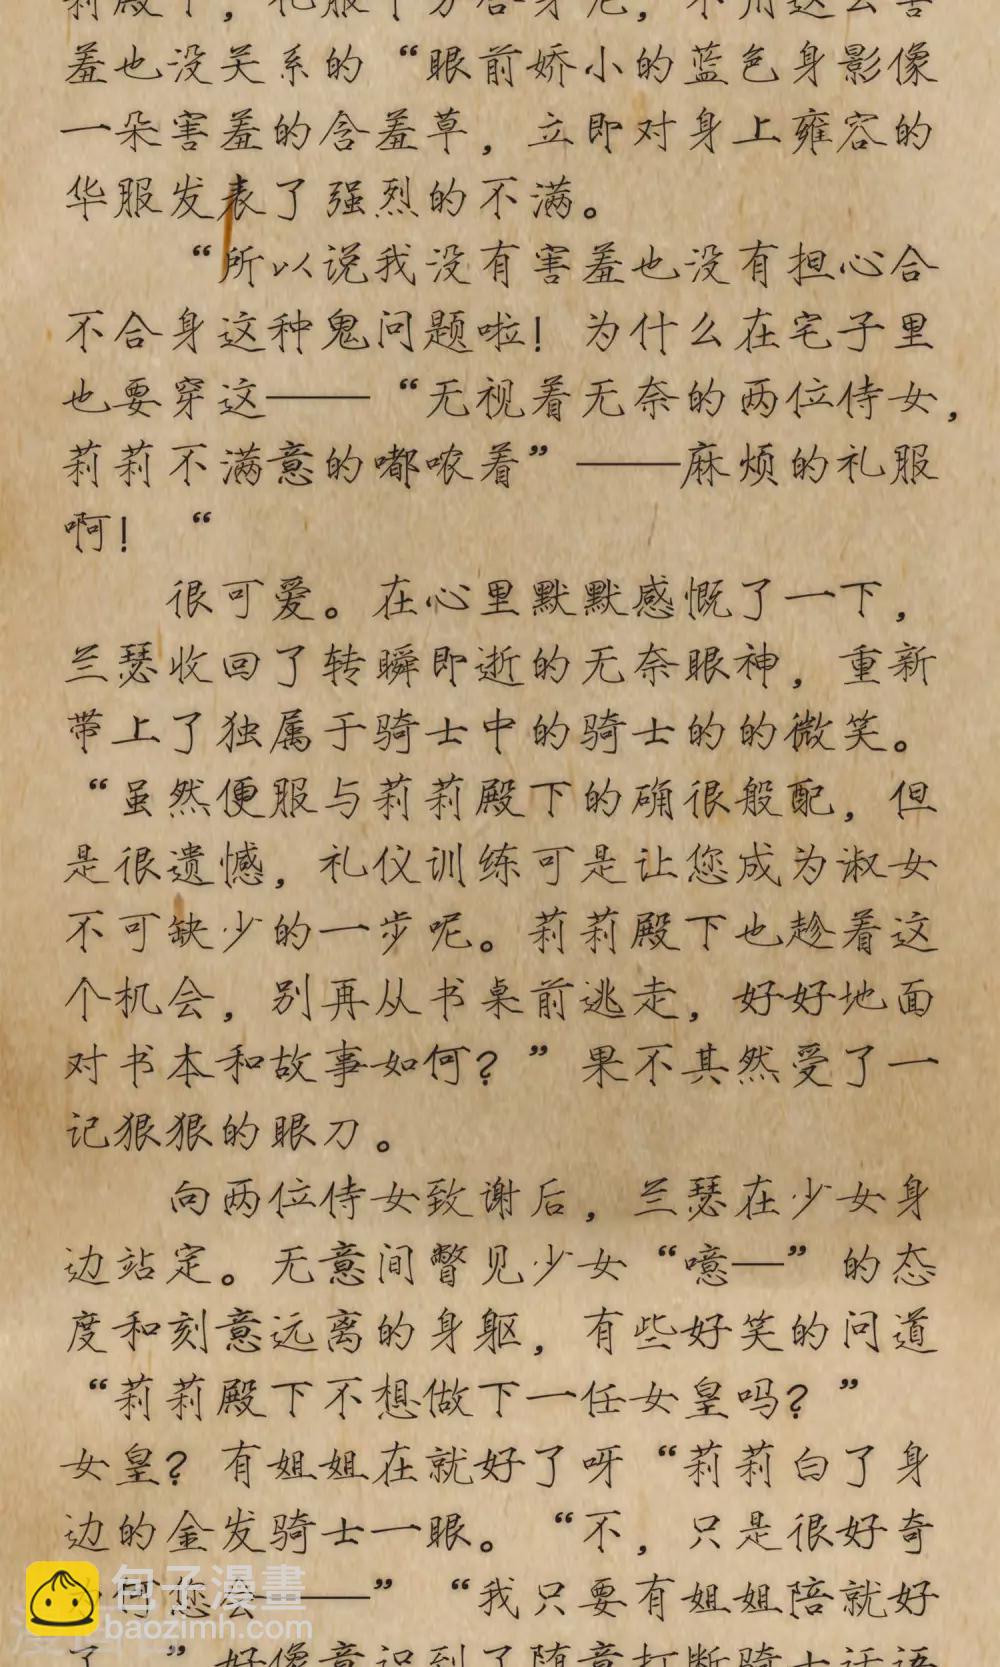 莉殿下，礼服十分合身呢，不用这么害
羞也没关系的“眼前娇小的蓝色身影像
一朵害羞的含羞草，立即对身上雍容的
华服发表了强烈的不满。
“所以说我没有害羞也没有担心合
不合身这种鬼问题啦！为什么在宅子里
也要穿这——“无视着无奈的两位侍女，
莉莉不满意的嘟哝着”——麻烦的礼服
啊！“
很可爱。在心里默默感慨了一下，
兰瑟收回了转瞬即逝的无奈眼神，重新
带上了独属于骑士中的骑士的的微笑。
“虽然便服与莉莉殿下的确很般配，但
是很遗憾，礼仪训练可是让您成为淑女
不可缺少的一步呢。莉莉殿下也趁着这
个机会，别再从书桌前逃走，好好地面
对书本和故事如何？”果不其然受了一
记狠狠的眼刀。
向两位侍女致谢后，兰瑟在少女身
边站定。无意间瞥见少女“噫—”的态
度和刻意远离的身躯，有些好笑的问道
“莉莉殿下不想做下一任女皇吗？”
女皇？有姐姐在就好了呀“莉莉白了身
边的金发骑士一眼。“不，只是很好奇
为何您会——”“我只要有姐姐陪就好
了。”好像意识到了随意打断骑士话语
包子漫畫
baozimh.com